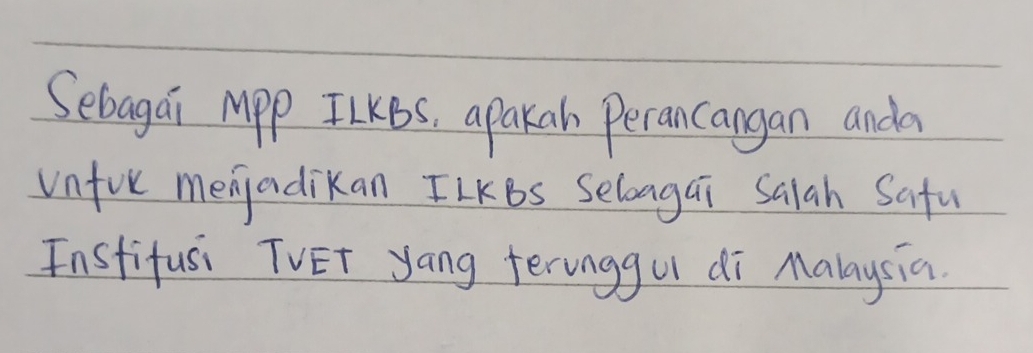 Sebagai MPP ILKBS, apakah Perancangan anda
untuk menjadikan ILKBS Sebagai Salah Satu
Institusi TVET yang terunggul di Malaysia.